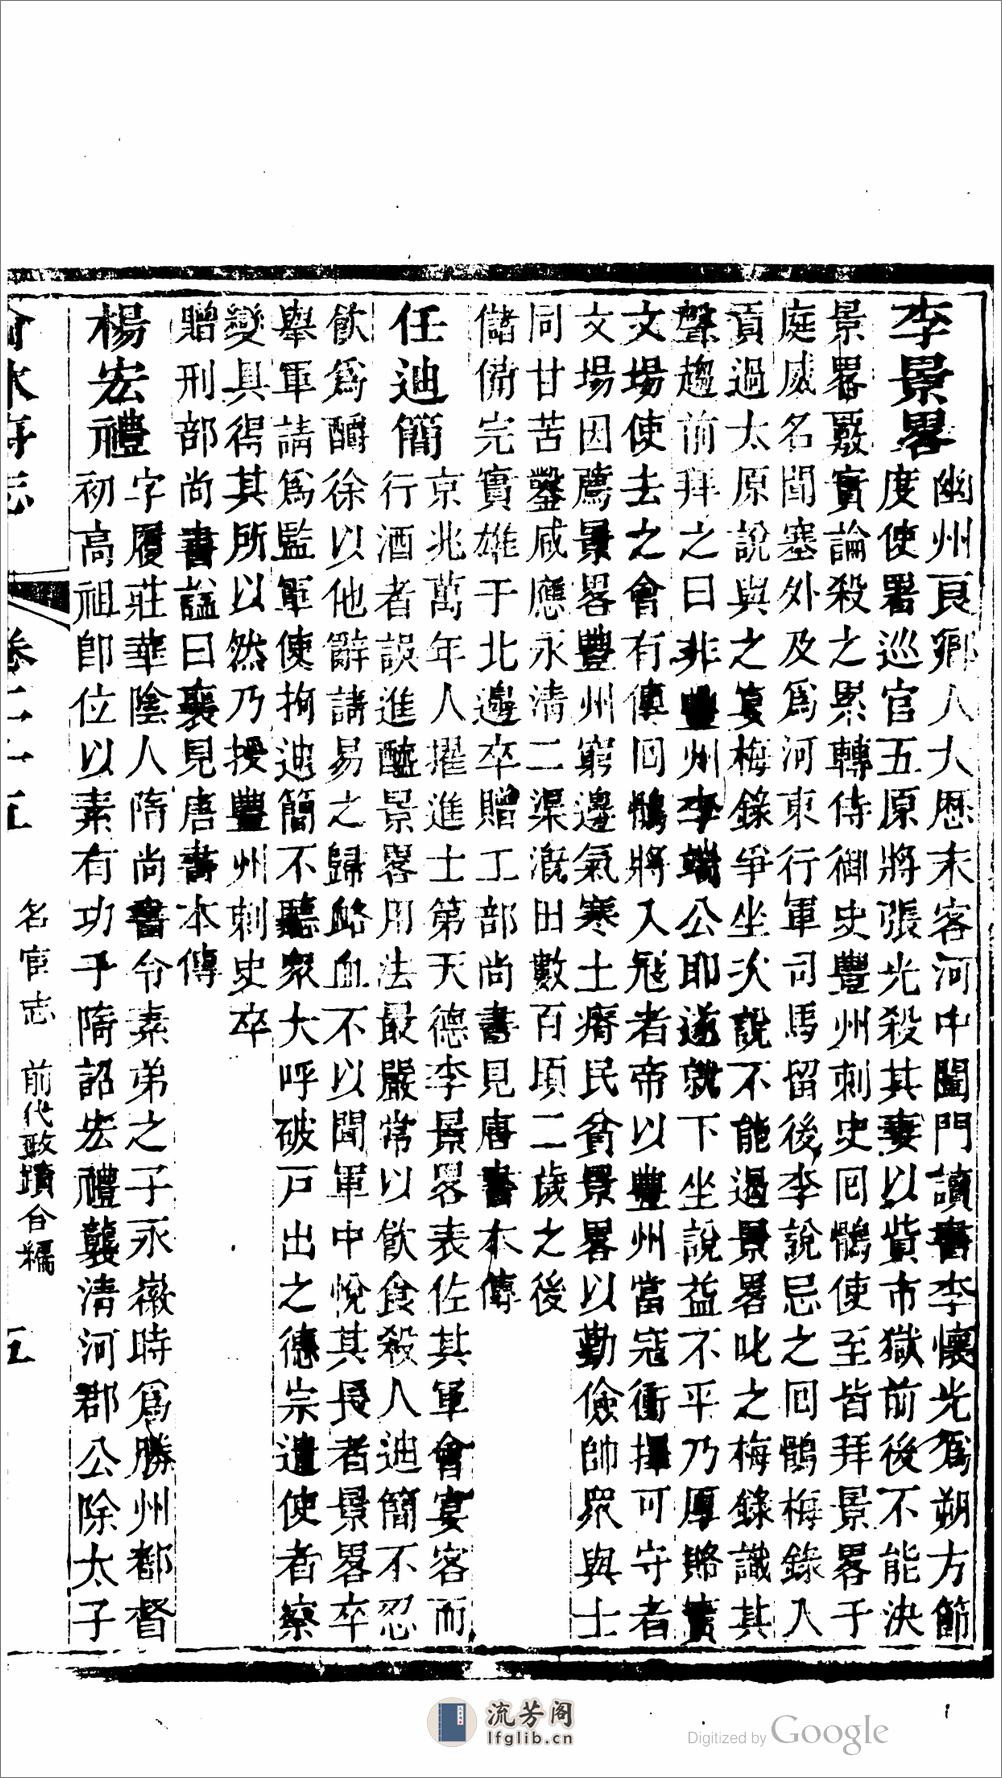 李景畧幽州良鄉人大厯末客河中闔門讀書李懷光爲朔方節
度使署巡官五原將張光殺其妻以貲市獄前後不能決
景畧覈實論殺之累轉侍御史豐州刺史回鶻使至皆拜景畧于
庭威名聞塞外及爲河東行軍司馬留後李說忌之回鶻梅錄入
貢過太原說與之宴梅錄爭坐次說不能遏景畧叱之梅錄識其
聲趨前拜之曰非豐州李端公耶遂就下坐說益不平乃厚賂竇
文場使去之會有傳回鶻將入寇者帝以豐州當寇衝擇可守者
文場因薦景畧豐州窮邊氣寒土瘠民貧景畧以勤儉帥眾與士
同甘苦鑿咸應永清二渠溉田數百頃二歲之後
儲備完實雄于北邊卒贈工部尚書見唐書本傳
任迪簡京兆萬年人擢進士第天德李景畧表佐其軍會宴客而
行酒者誤進醯景畧用法最嚴常以飲食殺人迪簡不忍
飲爲釂徐以他辭請易之歸衉血不以聞軍中悅其長者景畧卒
舉軍請爲監軍使拘迪簡不聽眾大呼破戸出之德宗遣使者察
變具得其所以然乃授豐州刺史卒
贈刑部尚書諡曰襄見唐書本傳
楊宏禮字履莊華陰人隋尚書令素弟之子永徽時爲勝州都督
初高祖即位以素有功于隋詔宏禮襲清河郡公除太子
榆林府志 卷二十五 名宦志 前代政蹟合編 五
流芳阁
lfglib.cn
Digitized by Google